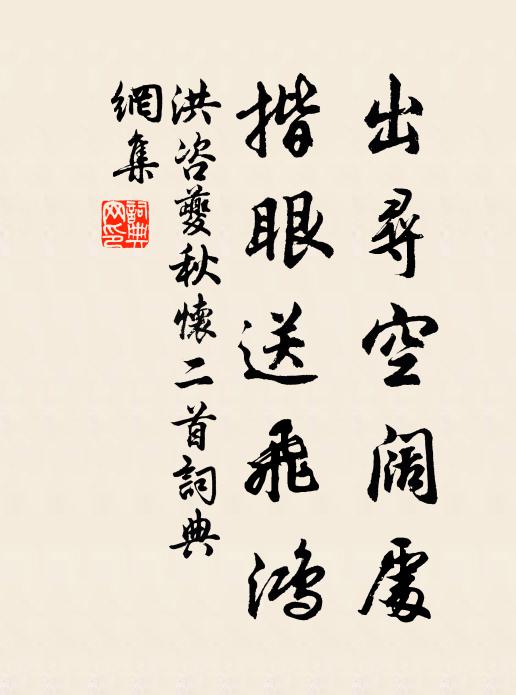 出尋空闊處
揩眼送飛鴻
洪咨夔秋懷二首詞典
網集
詞典
网印